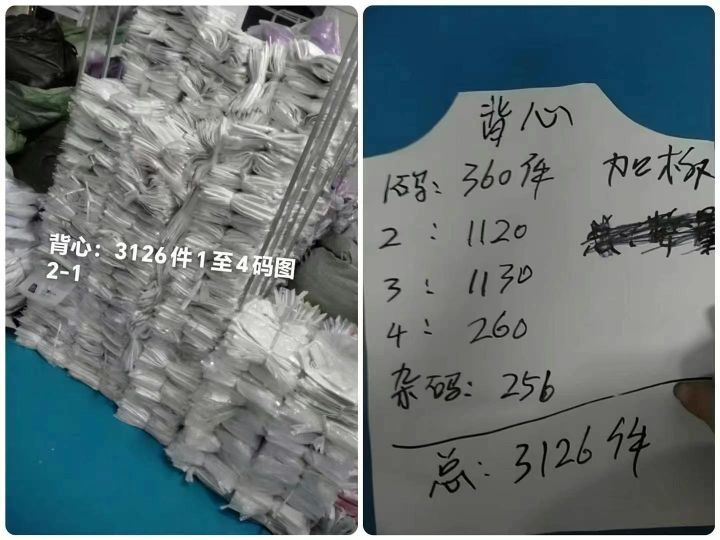 背心：3126件1至4码图
2-1
背心
1码：360件 加板
2：1120
3：1130
4：260
杂码：256
总：3126件